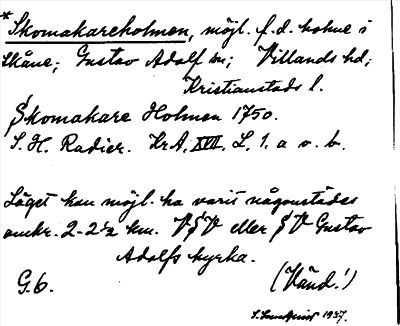 * Skomakareholmen, möjl. f.d. holme i
Skåne; Gustav Adolf sn; Villands hd;
Kristianstads l.
Skomakare Holmen 1750.
S. H. Radier. KrA, XVII, L, 1. a o. b.
Läget kan möjl. ha varit någonstädes
omkr. 2-2½ km. VSV eller SV Gustav
Adolfs kyrka.
G.6. (Vänd!)
1937.